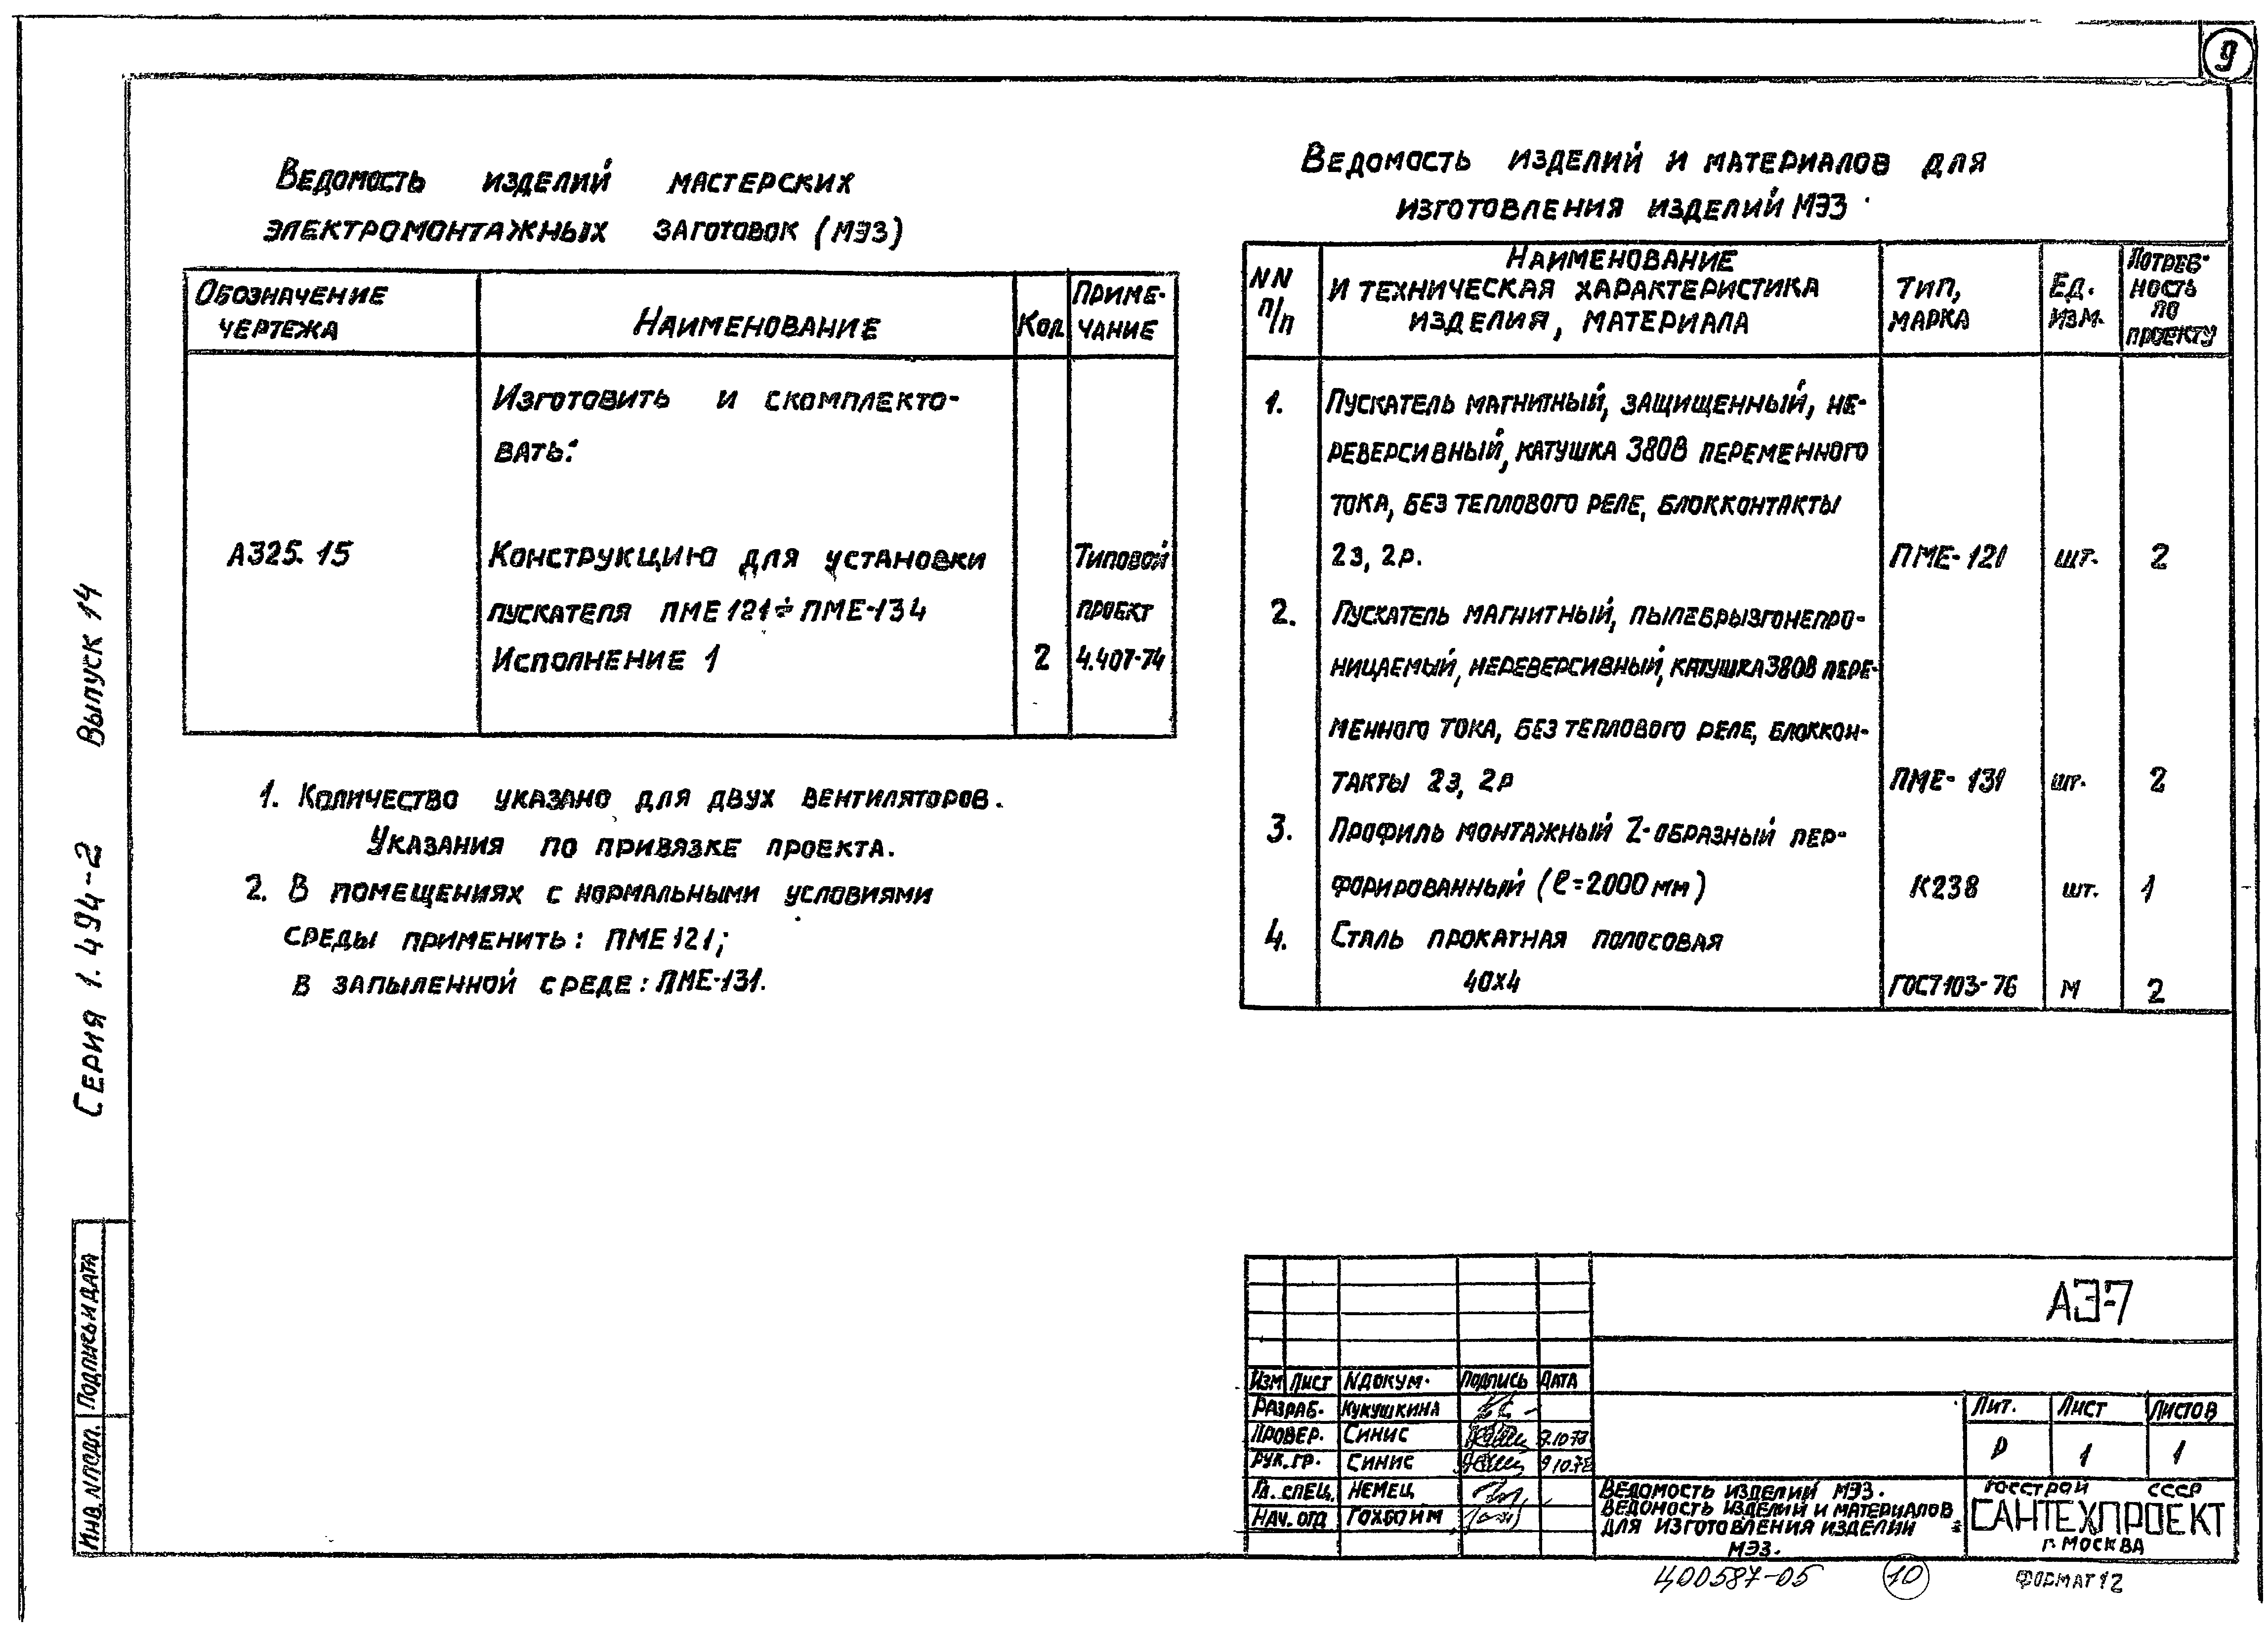 9
Ведомость изделий мастерских
электромонтажных заготовок (МЭЗ)
Обозначение чертежа
Наименование
Кол
Приме-
чание
Изготовить и скомплекто-
вать:
А325.15
Конструкцию для установки
Типовой
пускателя ПМЕ 121÷ПМЕ-134
проект
Исполнение 1
2
4.407-74
1. Количество указано для двух вентиляторов.
Указания по привязке проекта.
2. В помещениях с нормальными условиями
среды применить: ПМЕ 121;
в запыленной среде: ПМЕ-131.
Ведомость изделий и материалов для
изготовления изделий МЭЗ
NN
п/п
Наименование
и техническая характеристика
изделия, материала
Тип,
марка
Ед.
изм.
Потреб-
ность
по
проекту
1. Пускатель магнитный, защищенный, не-
реверсивный, катушка 380В переменного
тока, без теплового реле, блокконтакты
2з, 2р. ПМЕ-121 шт. 2
2. Пускатель магнитный, пылебрызгонепро-
ницаемый, нереверсивный, катушка 380В пере-
менного тока, без теплового реле, блоккон-
такты 2з, 2р ПМЕ-131 шт. 2
3. Профиль монтажный Z-образный пер-
форированный (ℓ=2000мм) К238 шт. 1
4. Сталь прокатная полосовая
40х4 ГОСТ103-76 м 2
Серия 1.494-2 Выпуск 14
Инв. N подл. Подпись и дата
АЭ-7
Изм Лист N докум. Подпись Дата
Разраб. Кукушкина
Провер. Синис
Рук. гр. Синис
Гл. спец. Немец
Нач. отд Гохбоим
Лит. Лист Листов
Р 1 1
Ведомость изделий МЭЗ.
Ведомость изделий и материалов
для изготовления изделий
МЭЗ.
Госстрой СССР
САНТЕХПРОЕКТ
г. Москва
Ц00587-05 10 Формат 12